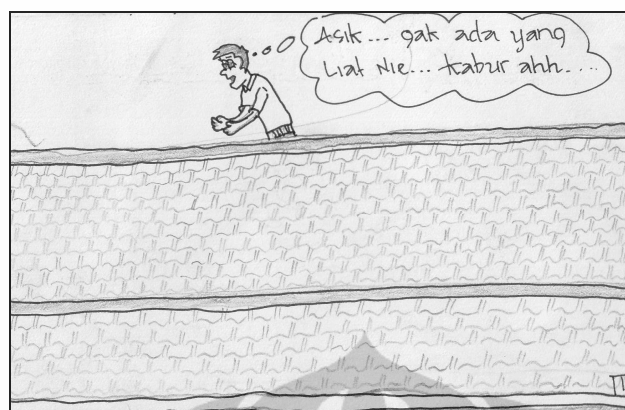 Asik... gak ada yang
Liat Nie... kabur ahh....